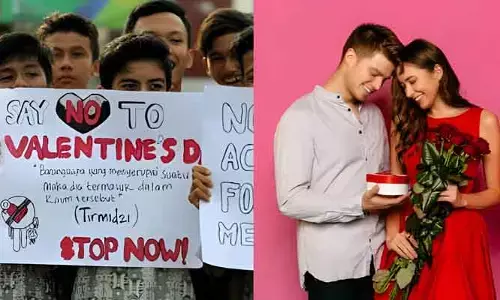 SAY NO TO
VALENTINE'S D
"Barangsiapa yang menyerupai suatu
maka dia termasuk dalam
Kaum tersebut"
(Tirmidzi)
STOP NOW!
NO
AC
FO
ME